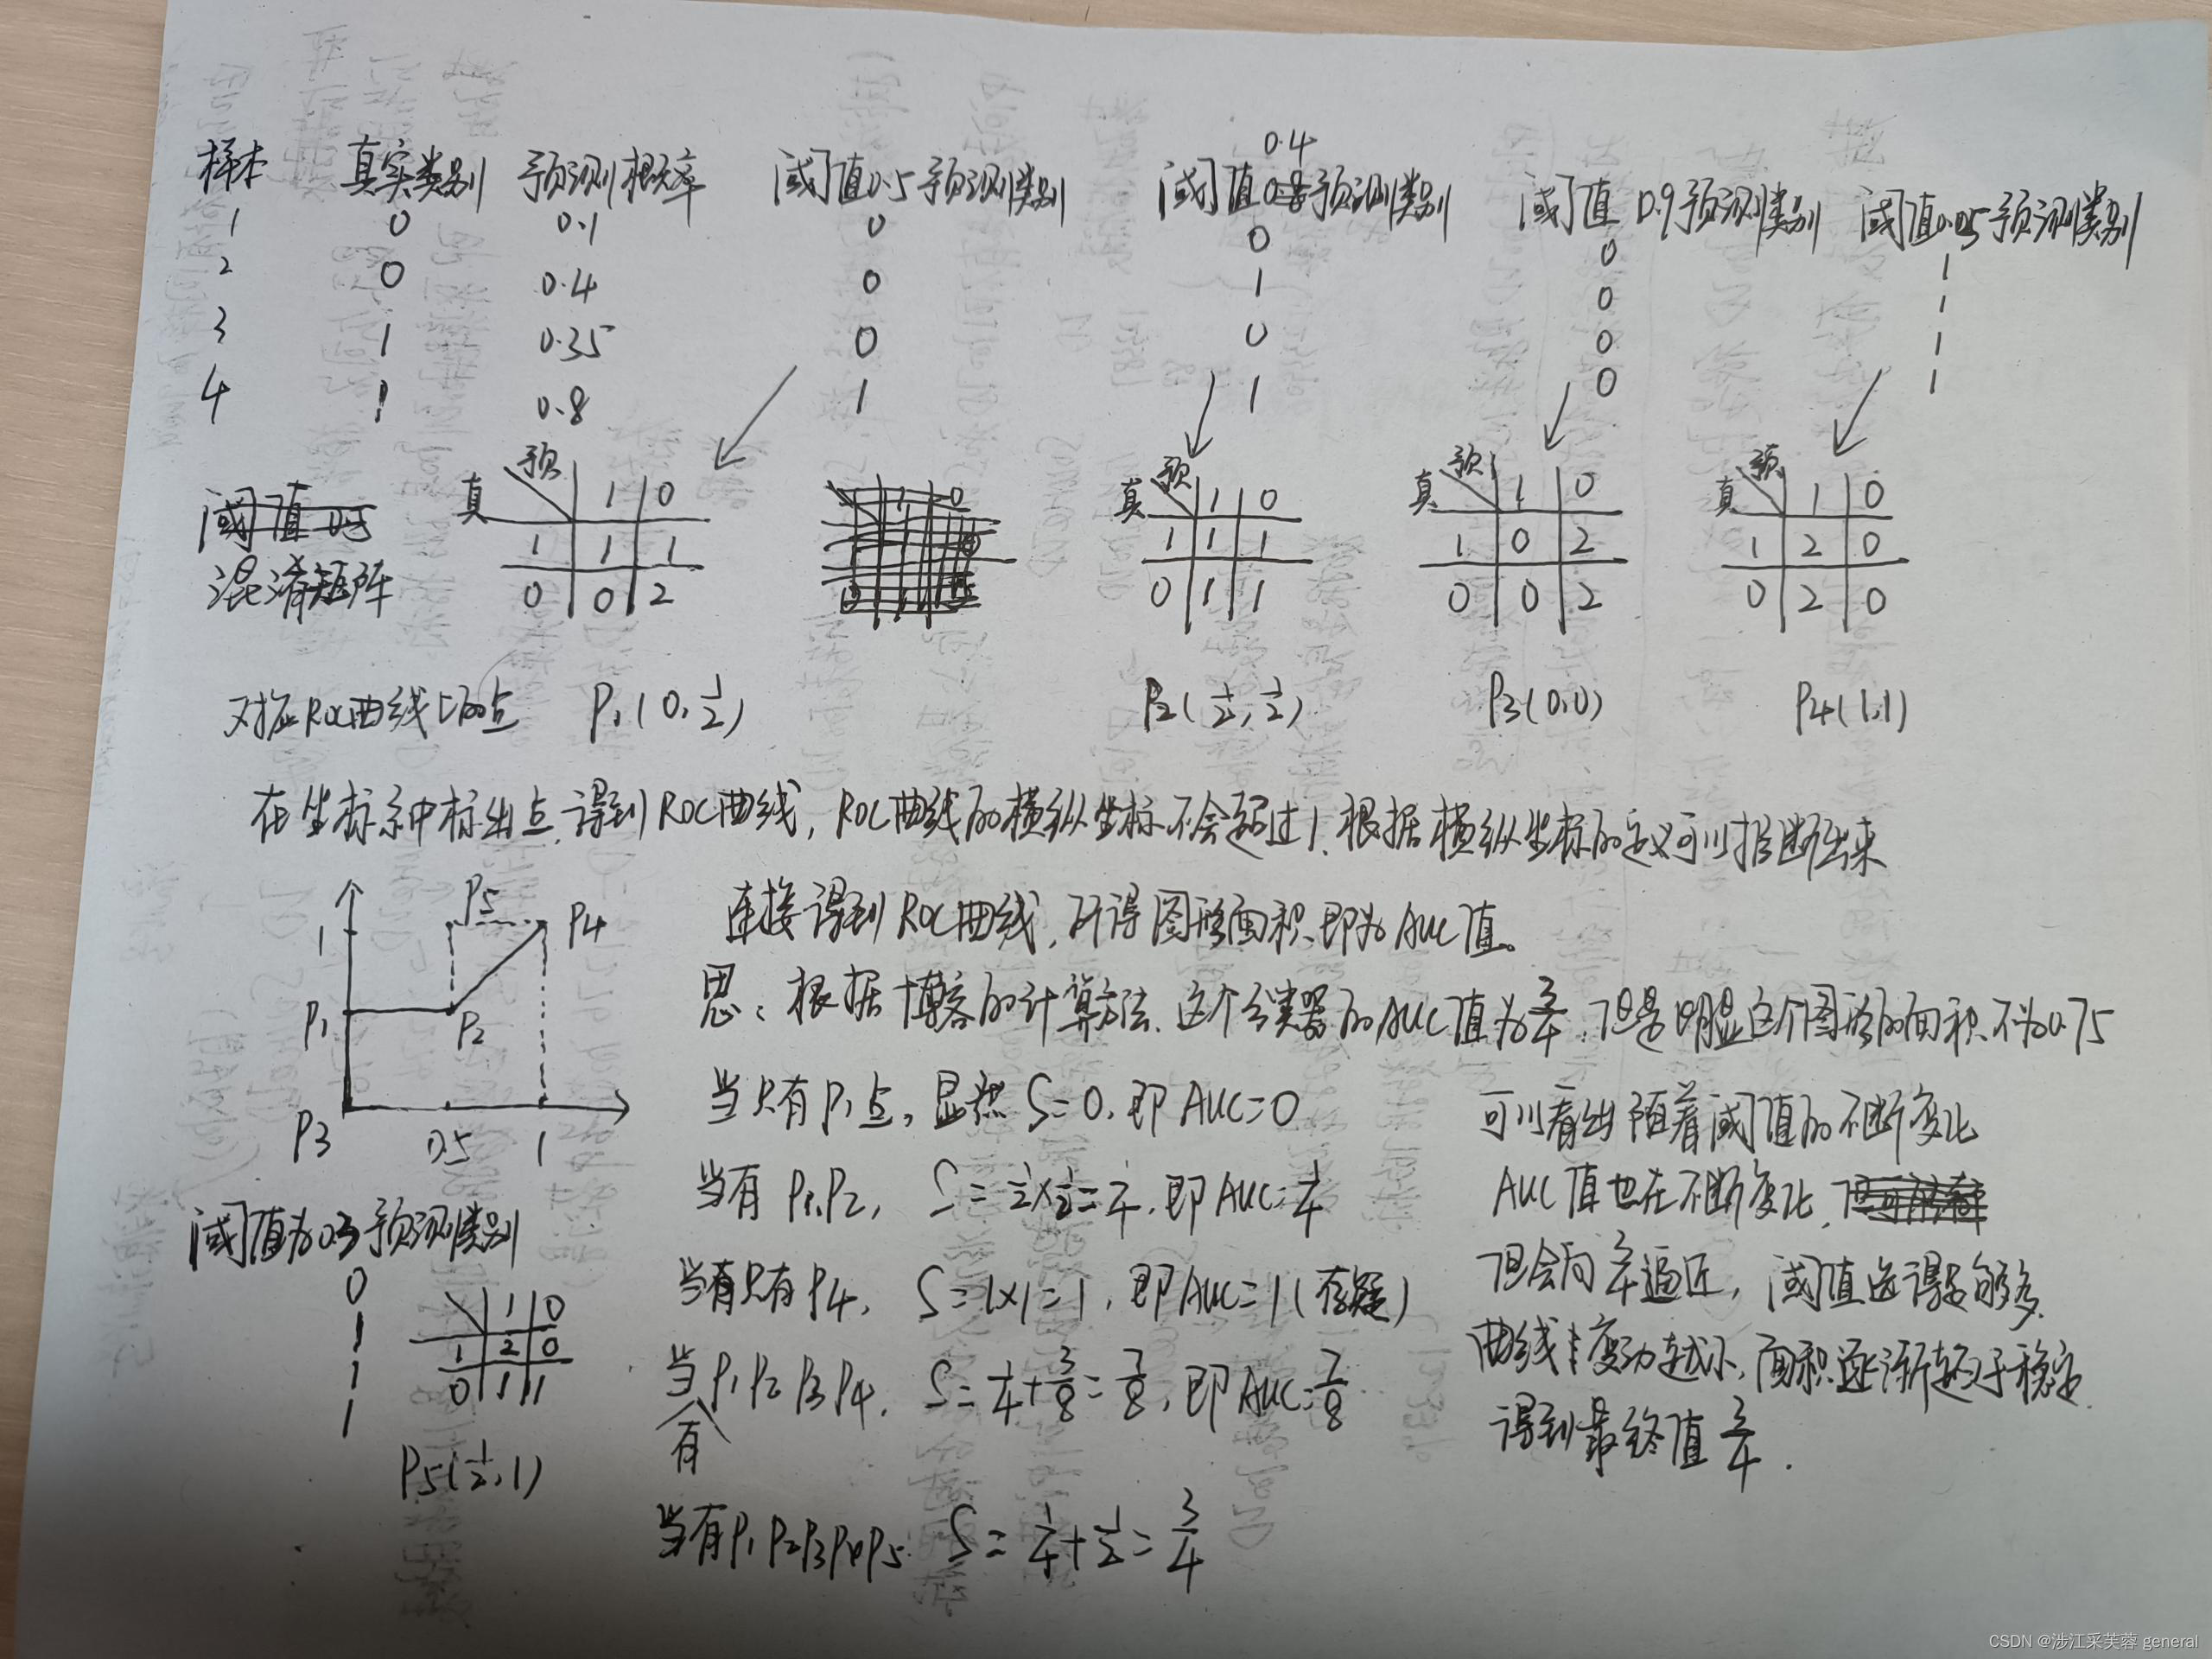 样本 真实类别 预测概率 阈值0.5预测类别 阈值0.4预测类别 阈值0.9预测类别 阈值0.05预测类别
1 0 0.1 0 0 0 1
2 0 0.4 0 1 0 1
3 1 0.35 0 0 0 1
4 1 0.8 1 1 0 1
混淆矩阵
真 预 1 0
1 1 1
0 0 2
真 预 1 0
1 1 1
0 1 1
真 预 1 0
1 0 2
0 0 2
真 预 1 0
1 2 0
0 2 0
对应ROC曲线上的点 P1(0,1/2) P2(1/2,1/2) P3(0,0) P4(1,1)
在坐标系中标出点,得到ROC曲线,ROC曲线的横纵坐标不会超过1,根据横纵坐标的定义可以推断出来
1 P5 P4
P1 P2
P3 0.5 1
连接得到ROC曲线,所得图形面积即为AUC值。
思:根据博客的计算方法,这个分类器的AUC值为3/4,但是明显这个图形的面积不为0.75
当只有P1点,显然S=0,即AUC=0
当有P1,P2, S=1/2×1/2=1/4,即AUC=1/4
当有只有P4, S=1×1=1,即AUC=1(存疑)
当有P1 P2 P3 P4, S=1/4+3/8=7/8,即AUC=7/8
当有P1 P2 P3 P4 P5 S=1/4+1/2=3/4
可以看出随着阈值的不断变化
AUC值也在不断变化,
但会向3/4逼近,阈值选得足够多,
曲线变动越小,面积逐渐趋于稳定,
得到最终值3/4.
阈值为0.3预测类别
0
1
1
1
1 0
1 2 0
0 1 1
P5(1/2,1)
CSDN @涉江采芙蓉 general